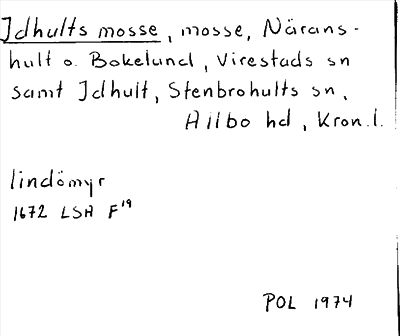 Idhults mosse, mosse, Närans-
hult o. Bokelund, Virestads sn
samt Idhult, Stenbrohults sn,
Allbo hd, Kron.l.
lindömyr
1672 LSA F¹⁹
POL 1974